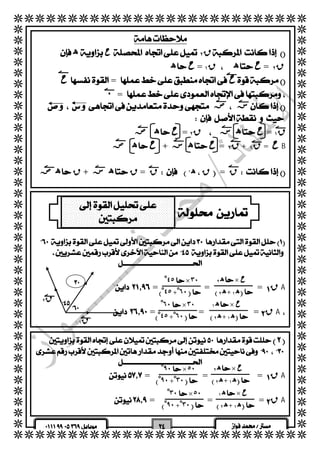 ملاحظات هامة
() إذا كانت المركبة ق١ تميل على اتجاه المحصلة ع بزاوية هـ فإن
ق١ = ع حتا هـ ، ق٢ = ع حا هـ
() مركبة قوة ع فى اتجاه منطبق على خط عملها = القوة نفسها ع
، ومركبتها فى الإتجاه العمودى على خط عملها = ٠
() إذا كان ، متجهى وحدة متعامدين فى اتجاهى و س ، و ص
حيث و نقطة الأصل فإن :
ق١ = ع حتا هـ ، ق٢ = ع حا هـ
B ع = ق١ + ق٢ = ع حتا هـ + ع حا هـ
() إذا كانت : ق = ( ق ، هـ ) فإن : ق = ق حتا هـ + ق حا هـ
تمارين محلولة
على تحليل القوة إلى مركبتين
(١) حلل القوة التى مقدارها ٣٠ داين الى مركبتين الأولى تميل على القوة بزاوية ٦٠°
والثانية تميل على القوة بزاوية ٤٥° من الناحية الأخرى لأقرب رقمين عشريين .
الحـــــــل
A ق١ = ع × حا هـ٢ / حا ( هـ١ + هـ٢ ) = ٣٠ × حا ٤٥° / حا ( ٦٠° + ٤٥° ) = ٢١,٩٦ داين
، A ق٢ = ع × حا هـ١ / حا ( هـ١ + هـ٢ ) = ٣٠ × حا ٦٠° / حا ( ٦٠° + ٤٥° ) = ٢٦,٩٠ داين
٣٠
٤٥
٦٠
( ٢ ) حللت قوة مقدارها ٥٠ نيوتن إلى مركبتين تميلان على إتجاه القوة بزاويتين
٣٠° ، ٩٠° وفى ناحيتين مختلفتين منها أوجد مقدار هاتين المركبتين لأقرب رقم عشرى
الحـــــــل
A ق١ = ع × حا هـ٢ / حا ( هـ١ + هـ٢ ) = ٥٠ × حا ٩٠° / حا ( ٣٠° + ٩٠° ) = ٥٧,٧ نيوتن
A ق٢ = ع × حا هـ١ / حا ( هـ١ + هـ٢ ) = ٥٠ × حا ٣٠° / حا ( ٣٠° + ٩٠° ) = ٢٨,٩ نيوتن
مستر / محمد فواز
٢٤
موبايل ٣٦٩ ٥ ٩٩ ٠١١١